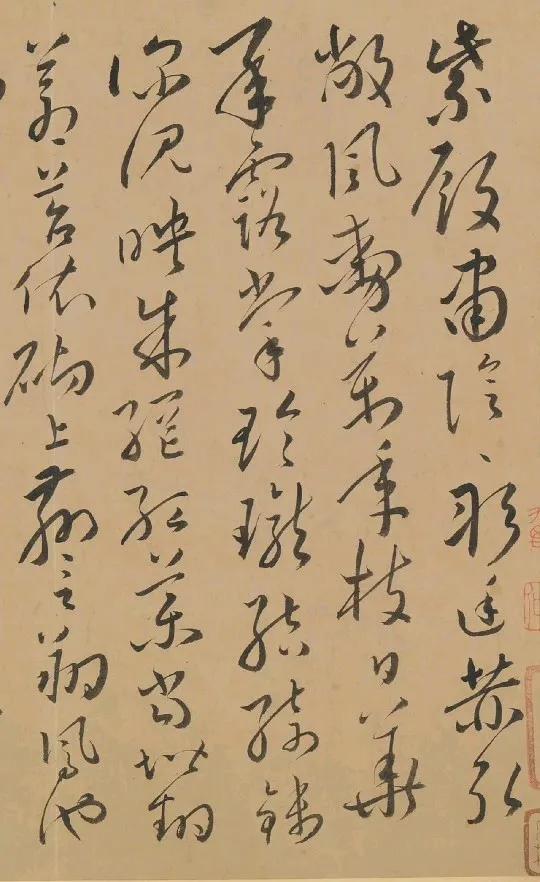 紫殿肅陰〻彤庭赫弘
敞風動萬年枝日華
承露掌玲瓏結綺錢
深沉映朱網紅藥當階翻
蒼苔依砌上茲言翔鳳池